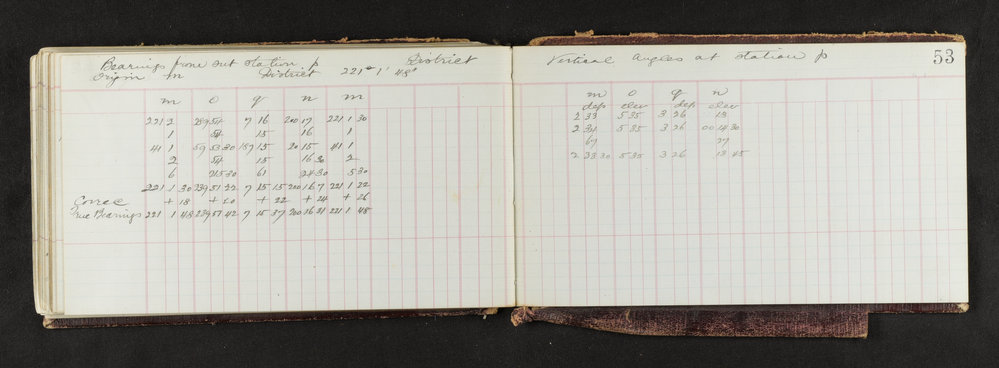 Bearings from Sut Station p District
Origin m District 221° 1' 48"
m o q n m
221 2 239 54 7 16 200 17 221 1 30
1 54 15 16 1
41 1 59 53 30 187 15 20 15 41 1
2 54 15 16 30 2
6 215 30 61 24 30 5 30
221 1 30 239 51 22 7 15 15 200 16 7 221 1 22
Correc + 18 + 20 + 22 + 24 + 26
True Bearings 221 1 48 239 51 42 7 15 37 200 16 31 221 1 48
Vertical Angles at Station p 53
m o q n
dep elev dep elev
2 33 5 35 3 26 13
2 34 5 35 3 26 00 14 30
67 27
2 33 30 5 35 3 26 13 45